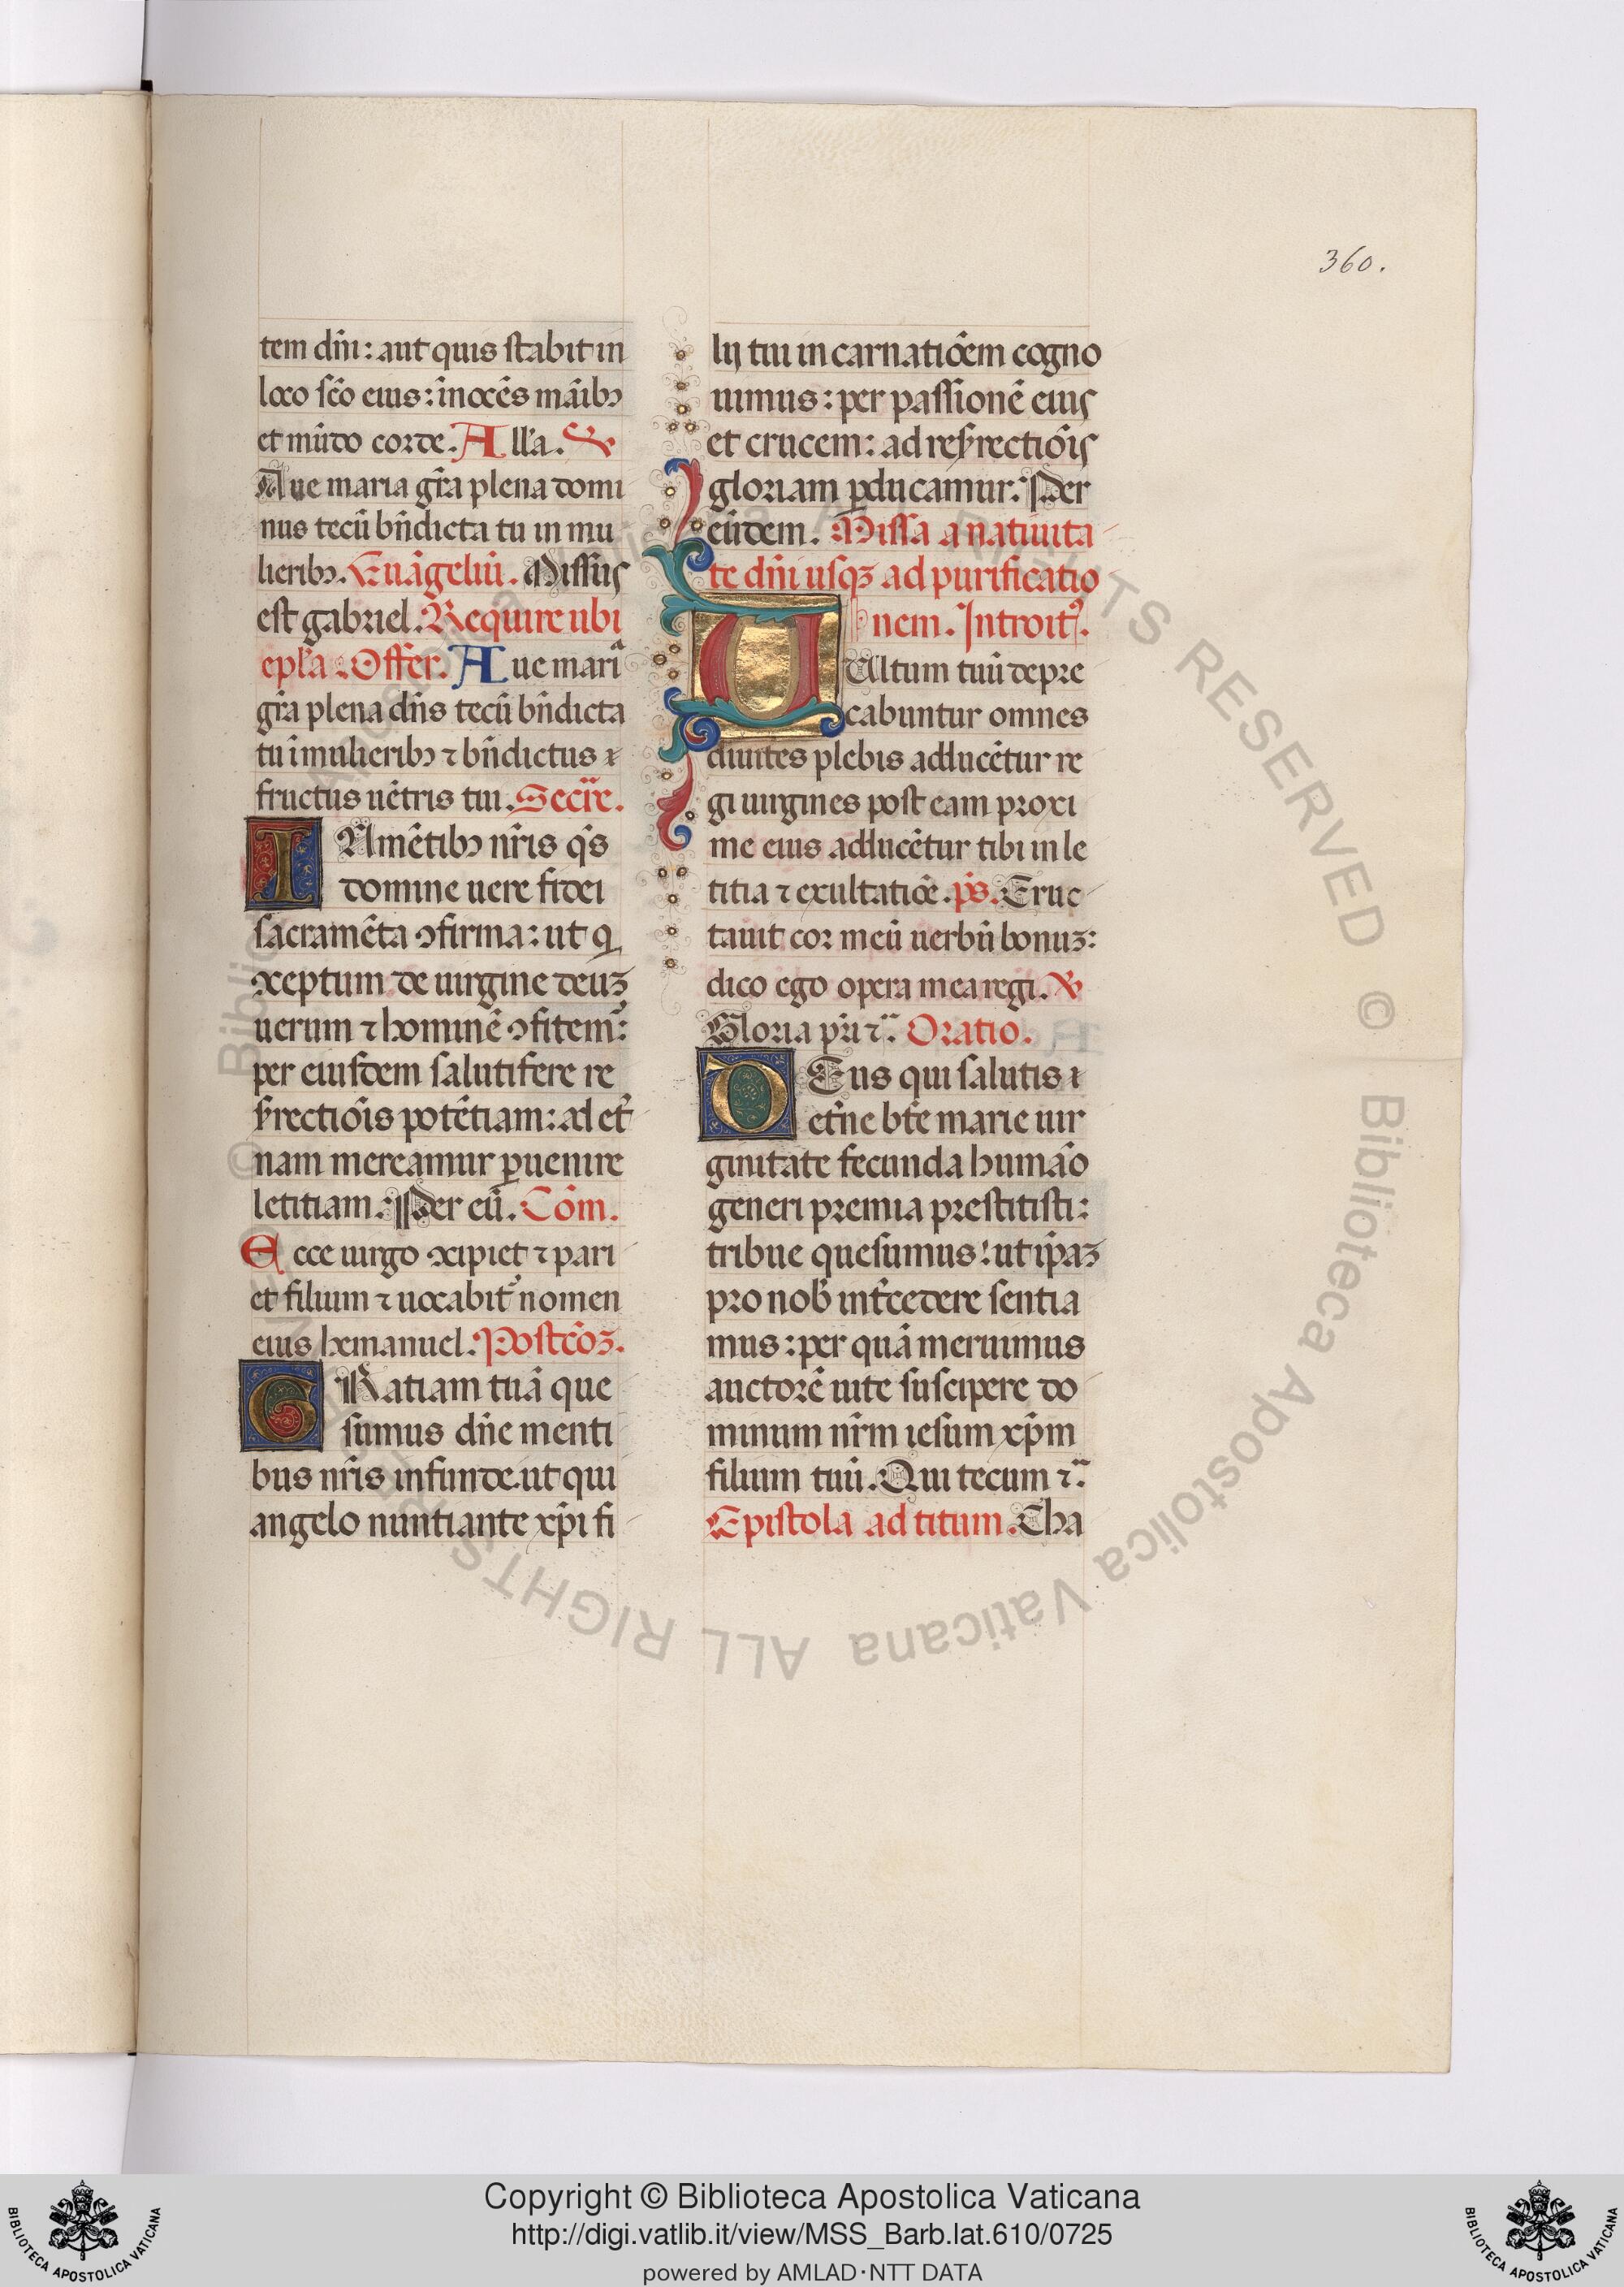 360.
tem dn̄i: aut quis stabit in
loco sc̄o eius: īnocēs māibꝫ
et mūdo corde. Alla. ℣
Aue maria gr̄a plena domi
nus tecū bn̄dicta tu in mu
lieribꝫ. Euāgeliū. Missus
est gabriel. Require ubi
ep̄la. Offer. Aue mariᵃ
gr̄a plena dn̄s tecū bn̄dicta
tu ī mulieribꝫ ⁊ bn̄dictus
fructus uētris tui. Secr̄e.
IN mētibꝫ nr̄is q̄s
domine uere fidei
sacramēta ꝯfirma: ut q
ꝯceptum de uirgine deuꝫ
uerum ⁊ hominē ꝯfitem᷑:
per eiusdem salutifere re
surrectiōis potētiam: ad et̄
nam mereamur ꝑuenire
letitiam. Per eū. Cōm.
Ecce uirgo ꝯcipiet ⁊ pari
et filium ⁊ uocabit᷑ nomen
eius hemanuel. Postcōꝫ.
GRatiam tuā que
sumus dn̄e menti
bus nr̄is infunde. ut qui
angelo nuntiante xp̄i fi
lij tui incarnatiōem cogno
uimus: per passionē eius
et crucem: ad resurrectiōis
gloriam ꝑducamur. Per
eūdem. Missa a natiuita
te dn̄i usqꝫ ad purificatio
nem. Introitꝰ.
UUltum tuū depre
cabuntur omnes
diuites plebis adducētur re
gi uirgines post eam proxi
me eius adducētur tibi in le
titia ⁊ exultatiōe. ps̄. Eruc
tauit cor meū uerbū bonuꝫ:
dico ego opera mea regi. ℣
Gloria pr̄i ⁊c̄. Oratio.
DEus qui salutis
et̄ne bt̄e marie uir
ginitate fecunda humāo
generi premia prestitisti:
tribue quesumus: ut ip̄aꝫ
pro nob̄ int̄cedere sentia
mus: per quā meruimus
auctorē uite suscipere do
minum nr̄m iesum xp̄m
filium tuū. Qui tecum ⁊c̄.
Epistola ad titum. Cha
Copyright © Biblioteca Apostolica Vaticana
http://digi.vatlib.it/view/MSS_Barb.lat.610/0725
powered by AMLAD·NTT DATA
BIBLIOTECA APOSTOLICA VATICANA
BIBLIOTECA APOSTOLICA VATICANA
© Biblioteca Apostolica Vaticana ALL RIGHTS RESERVED © Biblioteca Apostolica Vaticana ALL RIGHTS RESERVED